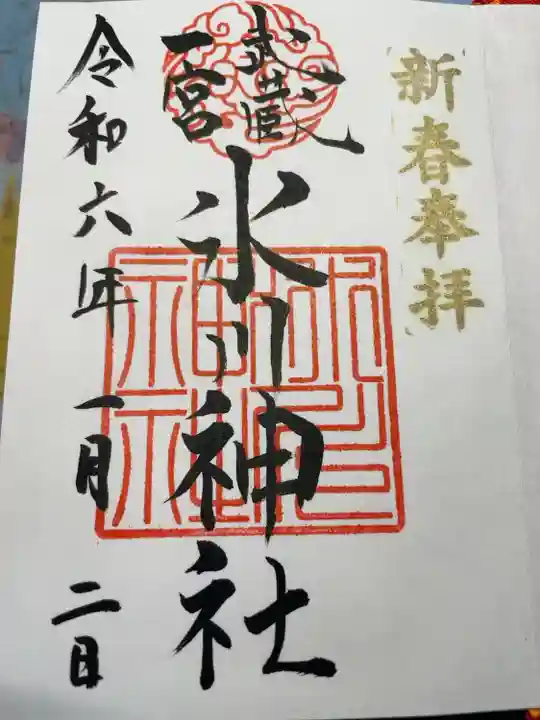 新春奉拝
武蔵
一宮
氷川神社
令和六年一月二日